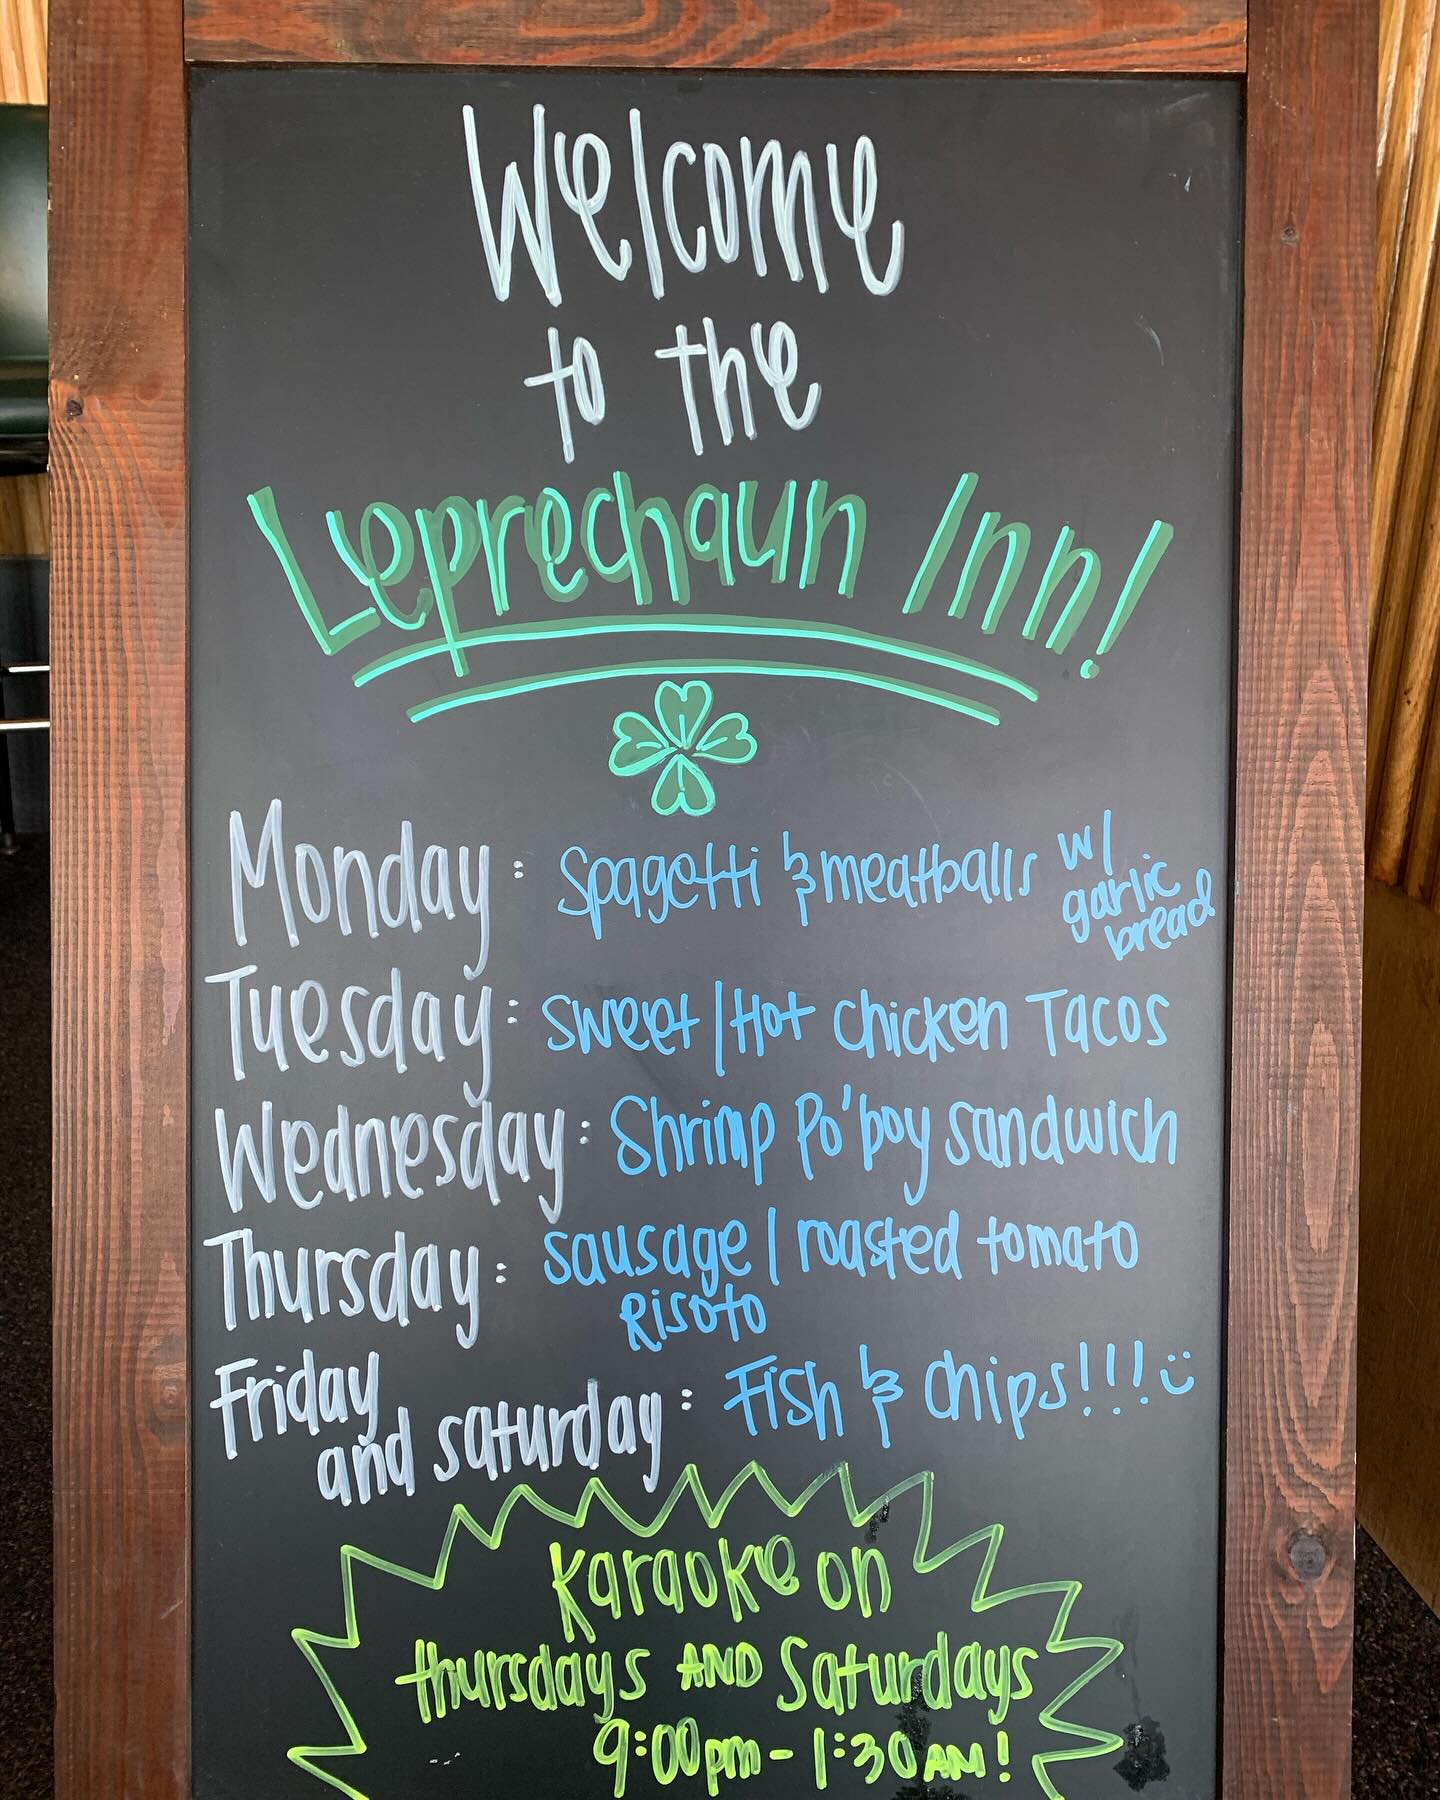 Welcome
to the
Leprechaun Inn!
Monday: Spagetti & meatballs w/
garlic
bread
Tuesday: Sweet/Hot Chicken Tacos
Wednesday: Shrimp Po'boy sandwich
Thursday: sausage/roasted tomato
Risoto
Friday
and saturday: Fish & Chips!!! :)
Karaoke on
thursdays AND Saturdays
9:00pm - 1:30AM!